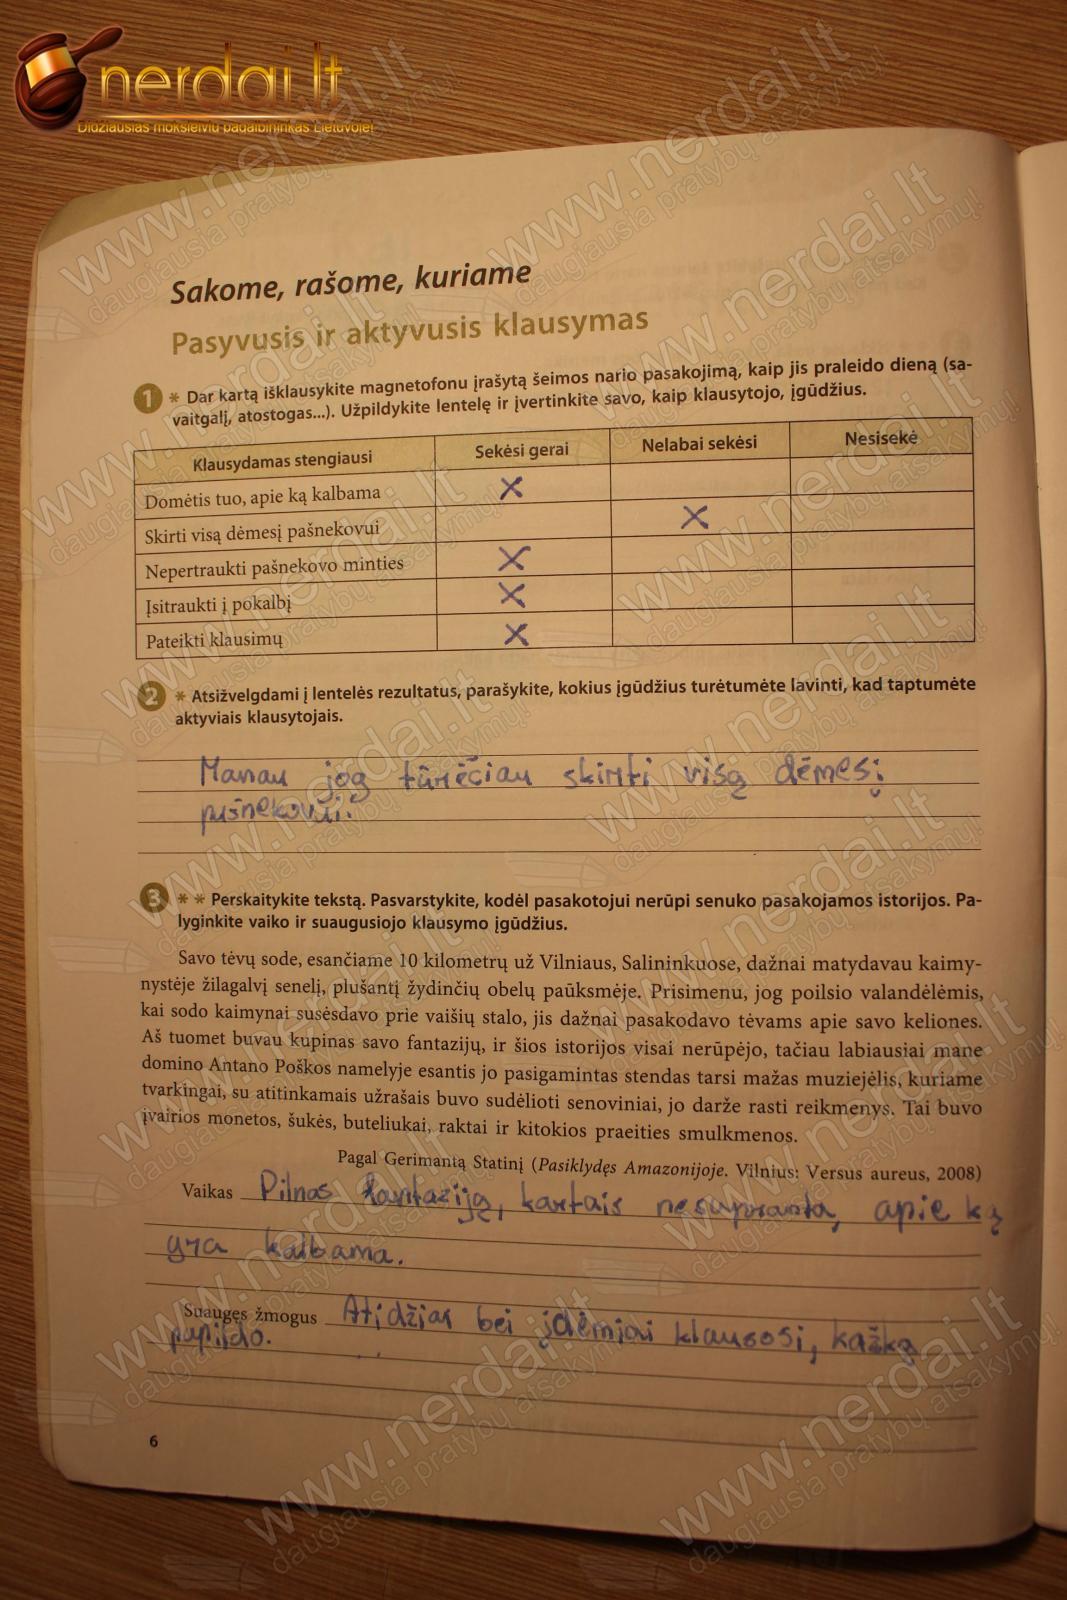 nerdai.lt
Didžiausias moksleivių pagalbininkas Lietuvoje!
www.nerdai.lt
daugiausia pratybų atsakymų!
Sakome, rašome, kuriame
Pasyvusis ir aktyvusis klausymas
1 * Dar kartą išklausykite magnetofonu įrašytą šeimos nario pasakojimą, kaip jis praleido dieną (sa-
vaitgalį, atostogas...). Užpildykite lentelę ir įvertinkite savo, kaip klausytojo, įgūdžius.
Klausydamas stengiausi Sekėsi gerai Nelabai sekėsi Nesisekė
Domėtis tuo, apie ką kalbama X
Skirti visą dėmesį pašnekovui X
Nepertraukti pašnekovo minties X
Įsitraukti į pokalbį X
Pateikti klausimų X
2 * Atsižvelgdami į lentelės rezultatus, parašykite, kokius įgūdžius turėtumėte lavinti, kad taptumėte
aktyviais klausytojais.
Manau jog tūrėčiau skirti visą dėmesį
pašnekovui.
3 * * Perskaitykite tekstą. Pasvarstykite, kodėl pasakotojui nerūpi senuko pasakojamos istorijos. Pa-
lyginkite vaiko ir suaugusiojo klausymo įgūdžius.
Savo tėvų sode, esančiame 10 kilometrų už Vilniaus, Salininkuose, dažnai matydavau kaimy-
nystėje žilagalvį senelį, plušantį žydinčių obelų paūksmėje. Prisimenu, jog poilsio valandėlėmis,
kai sodo kaimynai susėsdavo prie vaišių stalo, jis dažnai pasakodavo tėvams apie savo keliones.
Aš tuomet buvau kupinas savo fantazijų, ir šios istorijos visai nerūpėjo, tačiau labiausiai mane
domino Antano Poškos namelyje esantis jo pasigamintas stendas tarsi mažas muziejėlis, kuriame
tvarkingai, su atitinkamais užrašais buvo sudėlioti senoviniai, jo darže rasti reikmenys. Tai buvo
įvairios monetos, šukės, buteliukai, raktai ir kitokios praeities smulkmenos.
Pagal Gerimantą Statinį (Pasiklydęs Amazonijoje. Vilnius: Versus aureus, 2008)
Vaikas Pilnas fantazijų, kartais nesupranta, apie ką
yra kalbama.
Suaugęs žmogus Atidžiai bei įdėmiai klausosi, kažką
papildo.
6